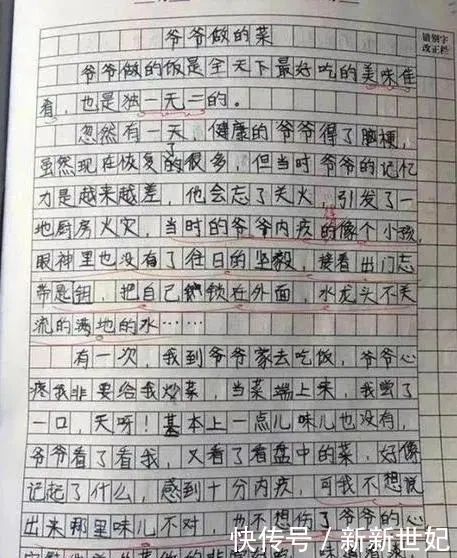 爷爷做的菜
错别字
改正栏
爷爷做的饭是全天下最好吃的美味佳
肴，也是独一无二的。
忽然有一天，健康的爷爷得了脑梗，
虽然现在恢复了的很多，但当爷爷的记忆
力是越来越差，他会忘了关火，引发了一
地厨房火灾，当时的爷爷内疚的像个小孩，
眼神里也没有了往日的坚毅，接着出门忘
带是钥，把自己锁在外面，水龙头不关
流的满地的水……
有一次，我到爷爷家去吃饭，爷爷心
疼我非要给我炒菜，当菜端上来，我尝了
一口，天呀！基本上一点儿味儿也没有，
爷爷看了看我，又看了看盘中的菜，好像
记起了什么，感到十分内疚，可我不想说
出来那里味儿不对，也不想伤了爷爷的心
快传号／新新世妃